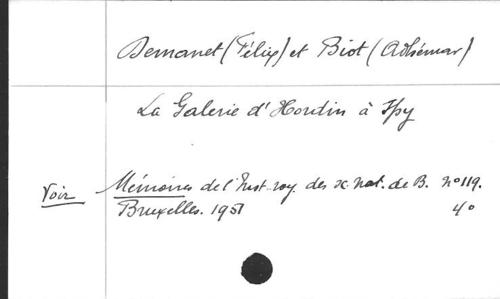 Demanet (Félix) et Biot (Adhémar)
La Galerie d'Hordin à Spy
Voir Mémoires de l'Inst. roy. des sc. nat. de B. n° 119.
Bruxelles. 1951 4°